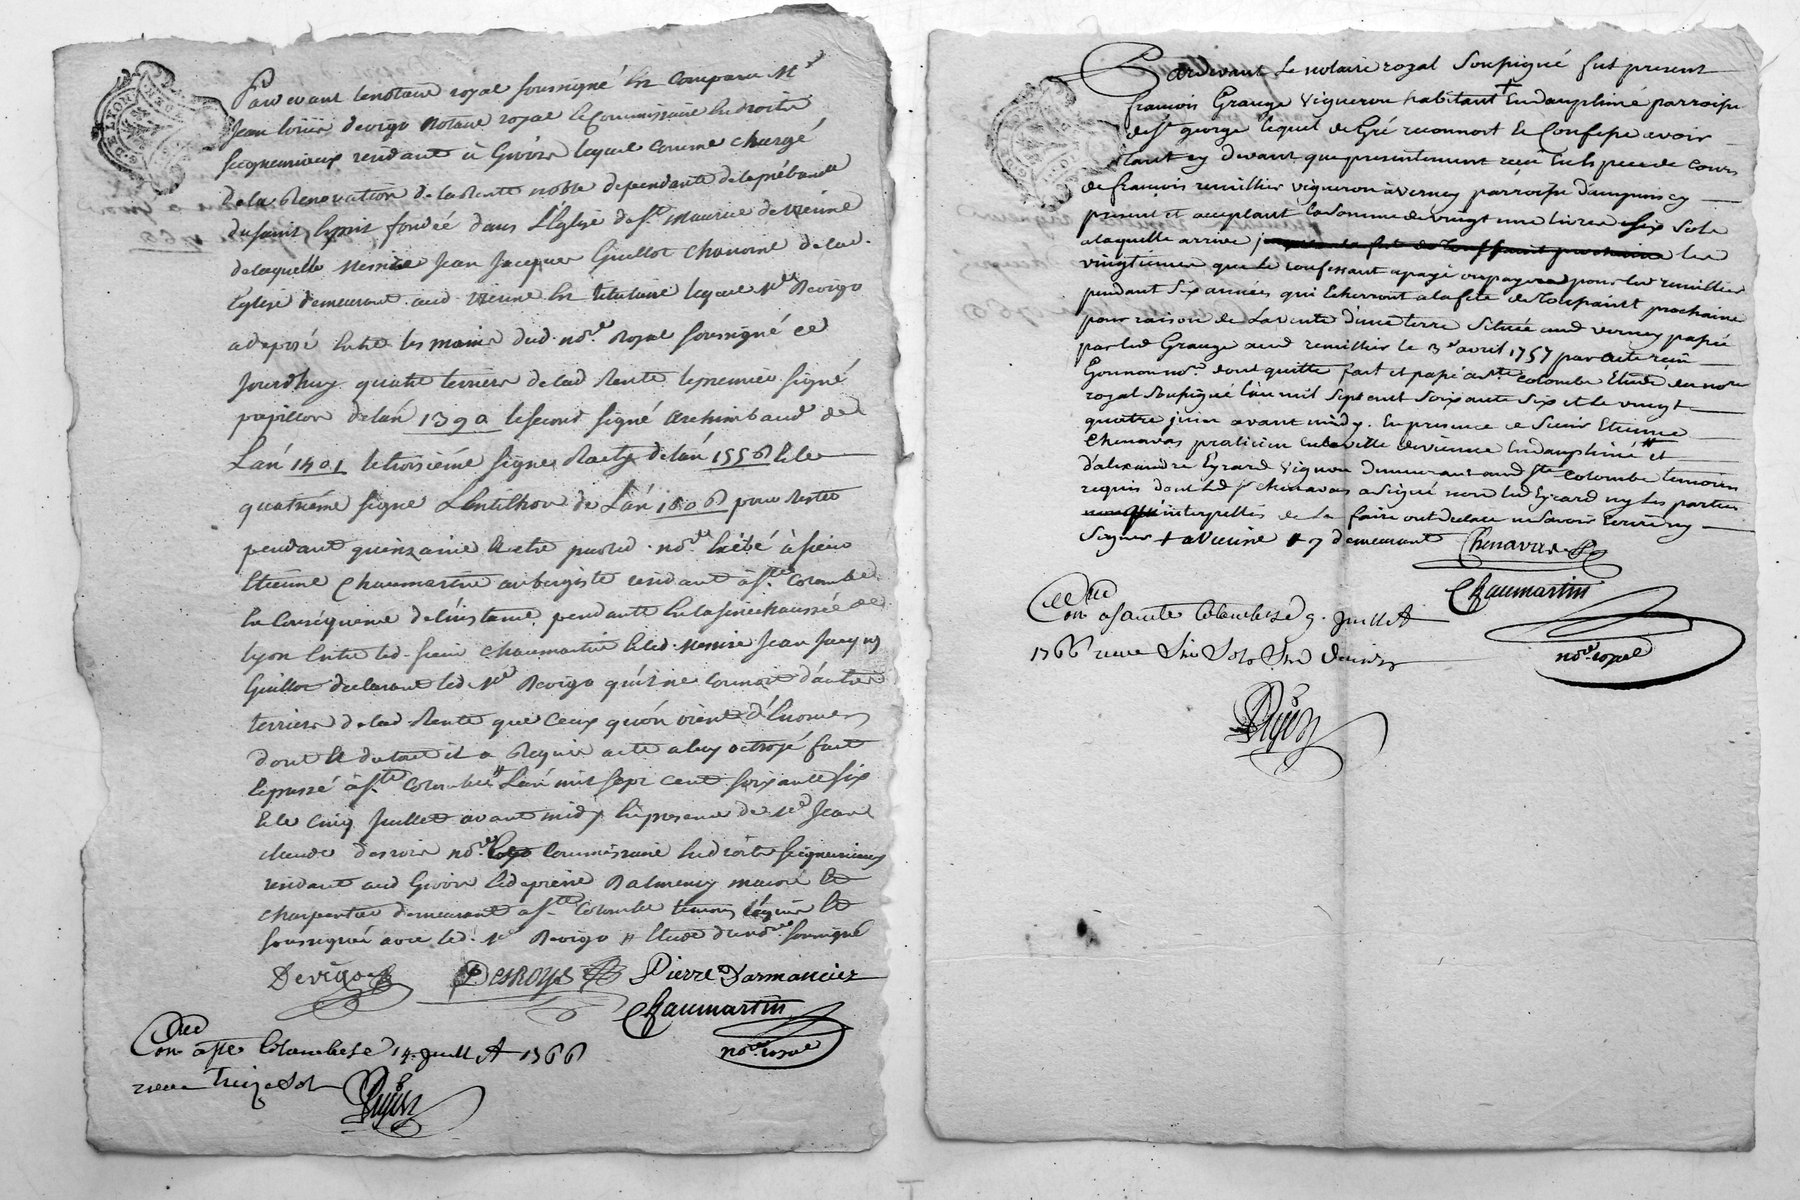 Pardevant le notaire royal soussigné est comparu Me
Jean Devigo notaire royal et Commissaire en droits
seigneuriaux residant à Givors lequel comme chargé
de la Renovation de la Rente noble dependante de la prébande
du saint Esprit fondée dans L'Eglise de St Maurice de Vienne
de laquelle Messire Jean Jacques Guillot Chanoine de lad.
Eglise demeurant aud. Vienne est titulaire lequel Me Devigo
a deposé entre les mains dud. nore Royal soussigné ce
jourdhuy quatre terriers de lad. Rente le premier signé
papillon de lan 1390 le second signé Archimbaud de
Lan 1401 le troisième signé de lan 1556 et le
quatrième signé Lentilhon de Lan 1606 pour rester
pendant quinzaine et etre par led. nore exibé à sieur
Etienne Chaumartin aubergiste residant à Ste Colombe
En Conséquence de l'instance pendante En la sénéchaussée de
Lyon Entre led. sieur Chaumartin et led. Messire Jean Jacques
Guillot declarant led. Me Devigo qu'il ne connoit d'autres
terriers de lad. Rente que ceux qu'on vient d'Enoncer
dont et du tout il a Requis acte a luy octroyé fait
et passé à Ste Colombe # Lan mil sept cent soixante six
et le cinq Juillet avant midy En presence de Me Jean
claude desroys nore Commissaire En droits seigneuriaux
residant aud. Givors et de pierre Dalmency et
charpentier demeurant a Ste Colombe temoins requis et
soussignés avec led. Me Devigo # Etude dud. nore soussigné
Devigo Desroys Pierre Darmancier
Chaumartin
nore royal
Con a Ste Colombe le 14. Juillet 1766
reçu treize sols
Pardevant Le notaire royal Soussigné fut present
francois Grange vigneron habitant + En dauphiné parroisse
de St george lequel de Gré reconnoit Et Confesse avoir
tant cy devant que presentement reçu En Espece de cours
de francois remillier vigneron à verney parroisse dampuis cy
present et acceptant la somme de vingt une livres six sols
a laquelle arrive jusques a la fete de Toussaint prochaine les
vingtiemes que le confessant a payé ou payera pour led remillier
pendant Six années qui Echerront a la fete de Toussaint prochaine
pour raison de La vente d'une terre Située aud verney passée
par led Grange aud remillier le 3e avril 1757 par acte reçu
Gonnon nore dont quitte fait et passé a Ste colombe Etude du nore
royal Soussigné L'an mil Sept cent Soixante Six et le vingt
quatre juin avant midy. En presence de Sieur Etienne
Chenavas praticien en la ville de vienne En dauphiné # et
d'alexandre Eyrard vigneron demeurant aud Ste Colombe temoins
requis dont led Sr chenavas a Signé non led Eyrard ny les parties
interpellés de le faire ont declaré ne Savoir Ecrire ny
Signer + a vienne # y demeurant Chenavas
Chaumartin
nore royal
Con a Sainte Colombe le 9. Juillet
1766 reçu Six Sols Six deniers